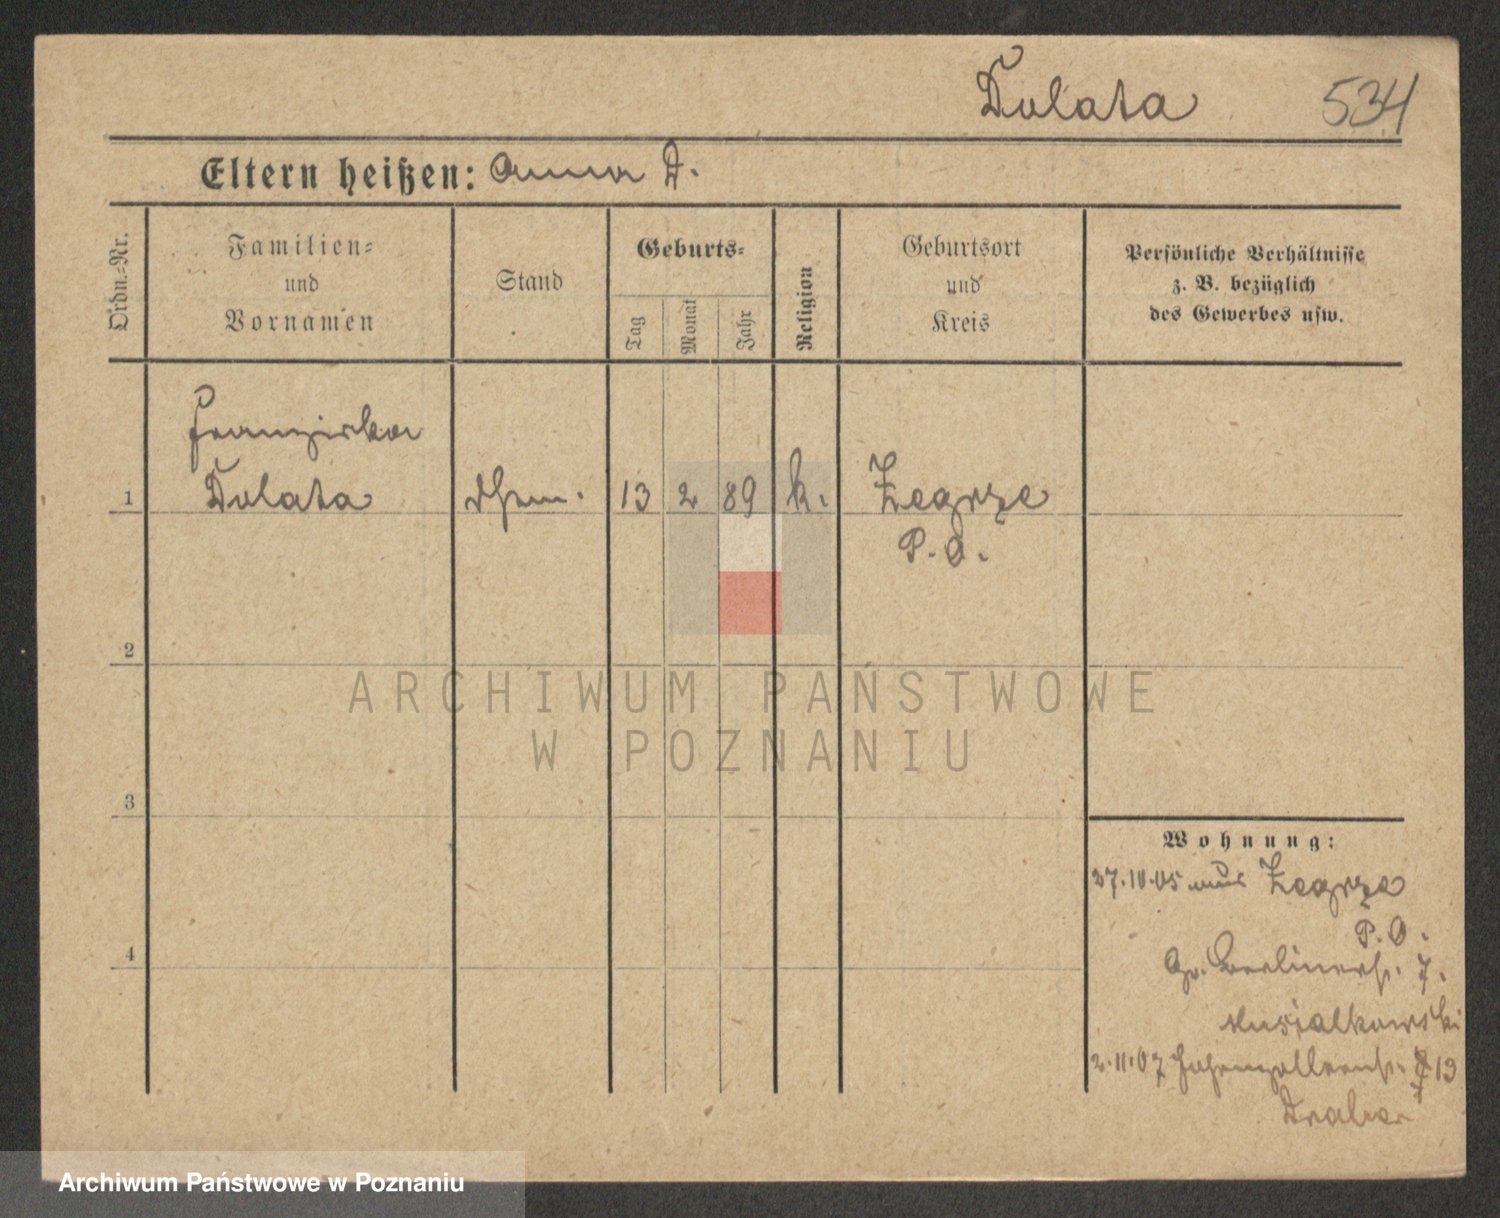 Dolata 534
Eltern heißen: Anna D.
Ordn.=Nr.
Familien=
und
Vornamen
Stand
Geburts=
Tag
Monat
Jahr
Religion
Geburtsort
und
Kreis
Persönliche Verhältnisse
z. B. bezüglich
des Gewerbes usw.
Franziska
1 Dolata 13 2 89 k. Zegrze
P. O.
2
3
4
ARCHIWUM PAŃSTWOWE
W POZNANIU
Wohnung:
27.10.05 aus Zegrze
P. O.
Gr. Berlinerstr. 7.
Musialkowski
2.11.07 Hohenzollernstr. 13
Archiwum Państwowe w Poznaniu